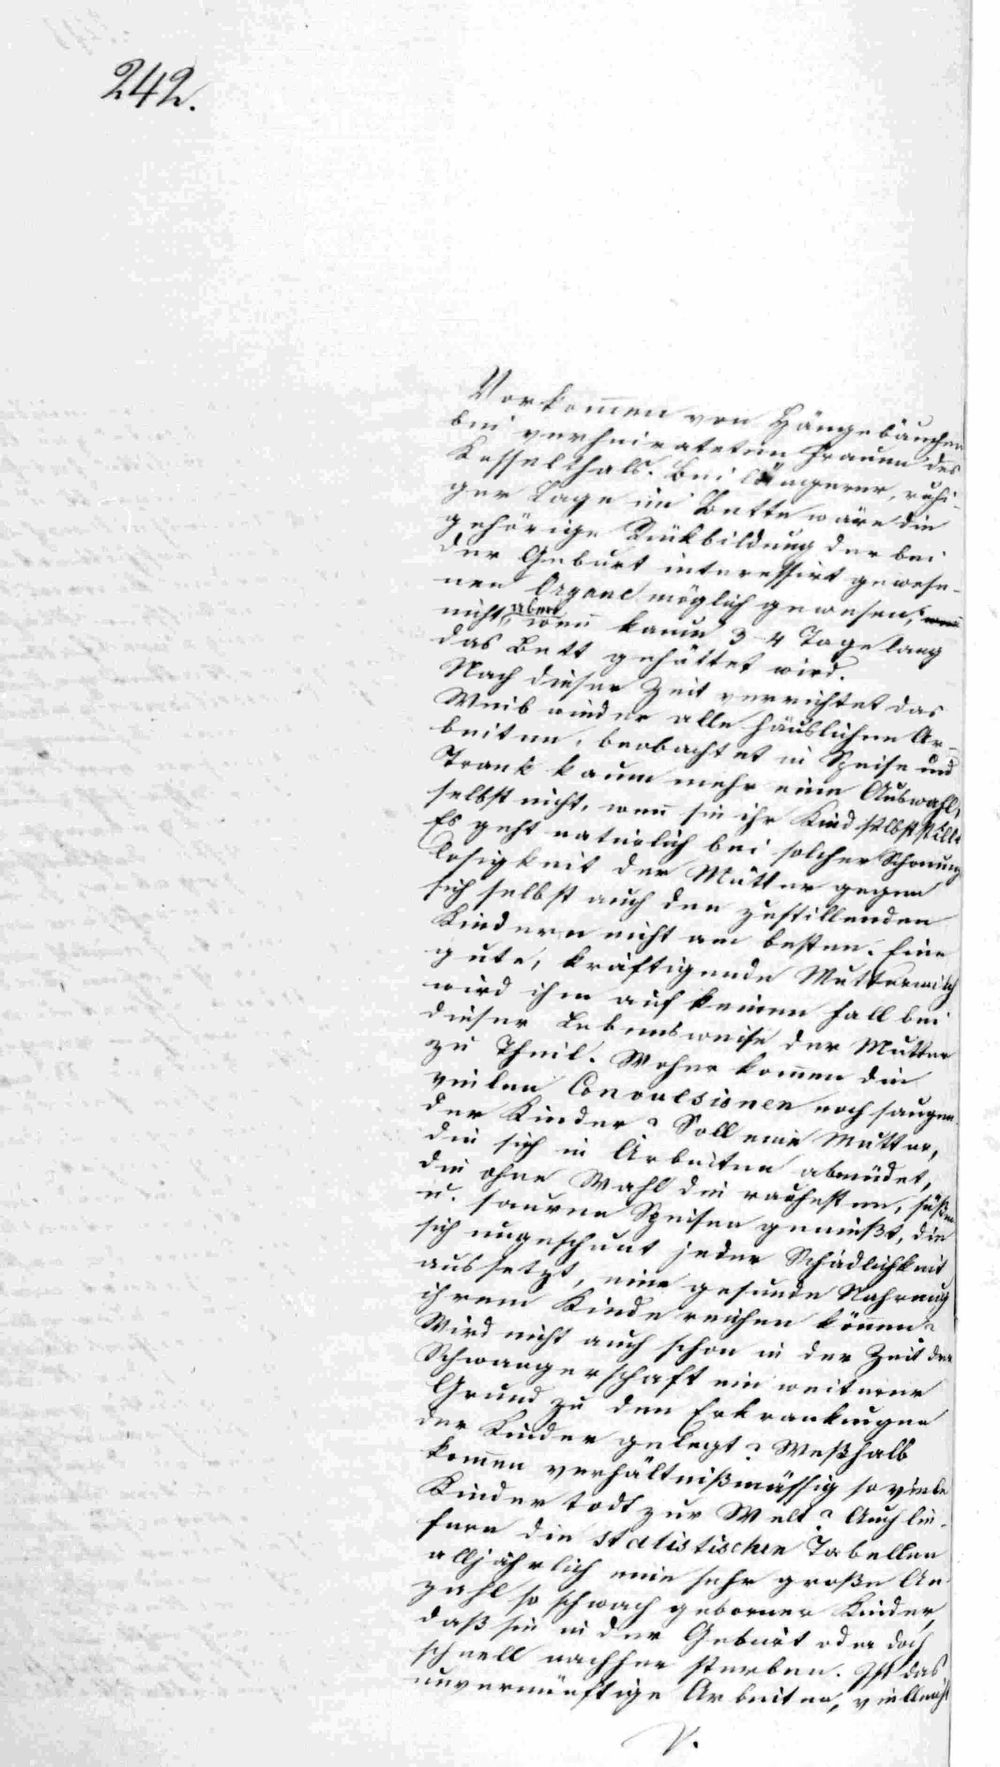 242.
Vorkom̄en von Hängebäuchen
bei verheirateten Frauen des
Kesselthals. Bei längerer, ruhi-
ger Lage im Bette wäre die
gehörige Rückbildung der bei
der Geburt interessirt gewese-
nen Organe möglich gewesen,
nicht aber wen̄ kaum 3-4 Tage lang
das Bett gehüttet wird.
Nach dieser Zeit verrichtet das
Weib wieder alle häuslichen Ar-
beiten, beobachtet in Speise und
Trank kaum mehr eine Auswahl,
selbst nicht, wen̄ sie ihr Kind selbst stille.
Es geht natürlich bei solcher Schonungs
losigkeit der Mütter gegen
sich selbst auch den zustillenden
Kindern nicht am besten. Eine
gute, kräftigende Muttermilch
wird ihm auf keinen Fall bei
dieser Lebensweise der Mutter
zu Theil. Woher kom̄en die
vielen Convulsionen noch saugen-
der Kinder? Soll eine Mutter,
die sich in Arbeiten abmüdet,
die ohne Wahl die rauhesten, süßen
u. sauren Speisen genießt, die
sich ungescheut jeder Schädlichkeit
aussetzt, eine gesunde Nahrung
ihrem Kinde reichen kön̄en?
Wird nicht auch schon in der Zeit der
Schwangerschaft ein weiterer
Grund zu den Erkrankungen
der Kinder gelegt? Weßhalb
kom̄en verhältnißmässig so viele
Kinder todt zur Welt? Auch lie-
fern die statistischen Tabellen
alljährlich eine sehr große An-
zahl so schwach geborner Kinder,
daß sie in der Geburt oder doch
schnell nachher sterben. Ist das
unvernünftige Arbeiten, vielleicht
V.